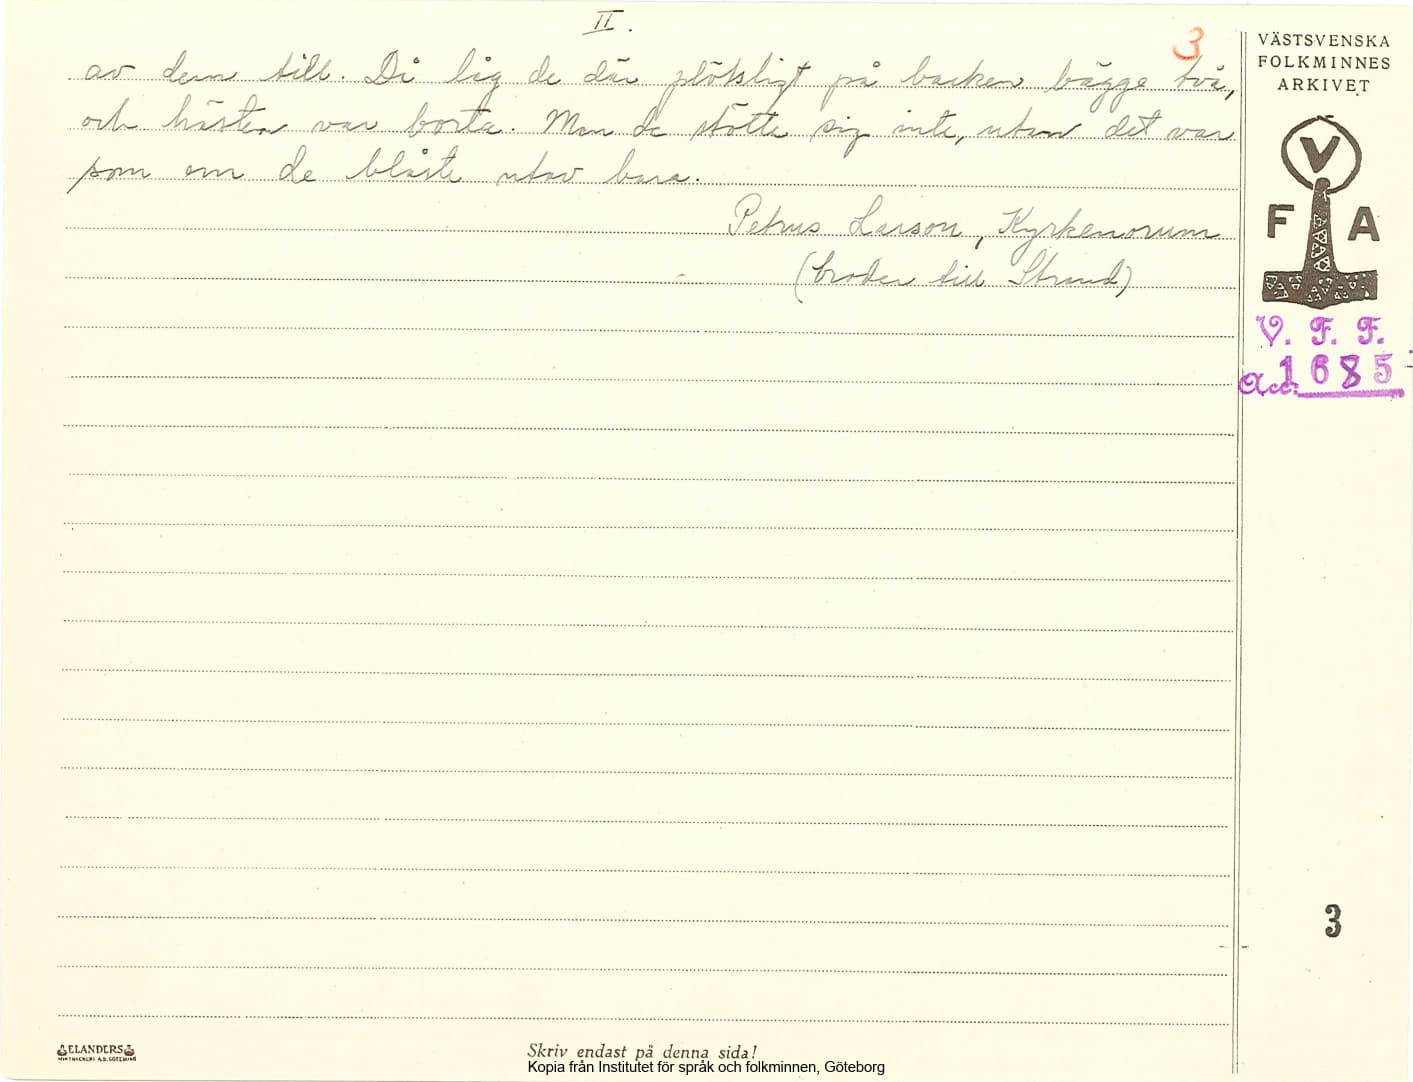 II.
3
av dem till. Då låg de där plötsligt på backen bägge två,
och hästen var borta. Men de stötte sig inte, utan det var
som om de blåste utav bara.
Petrus Larson, Kyrkenorum
(broder till Strand)
VÄSTSVENSKA
FOLKMINNES
ARKIVET
V
F A
V. F. F.
Acc. 1685
3
ELANDERS
Skriv endast på denna sida!
Kopia från Institutet för språk och folkminnen, Göteborg